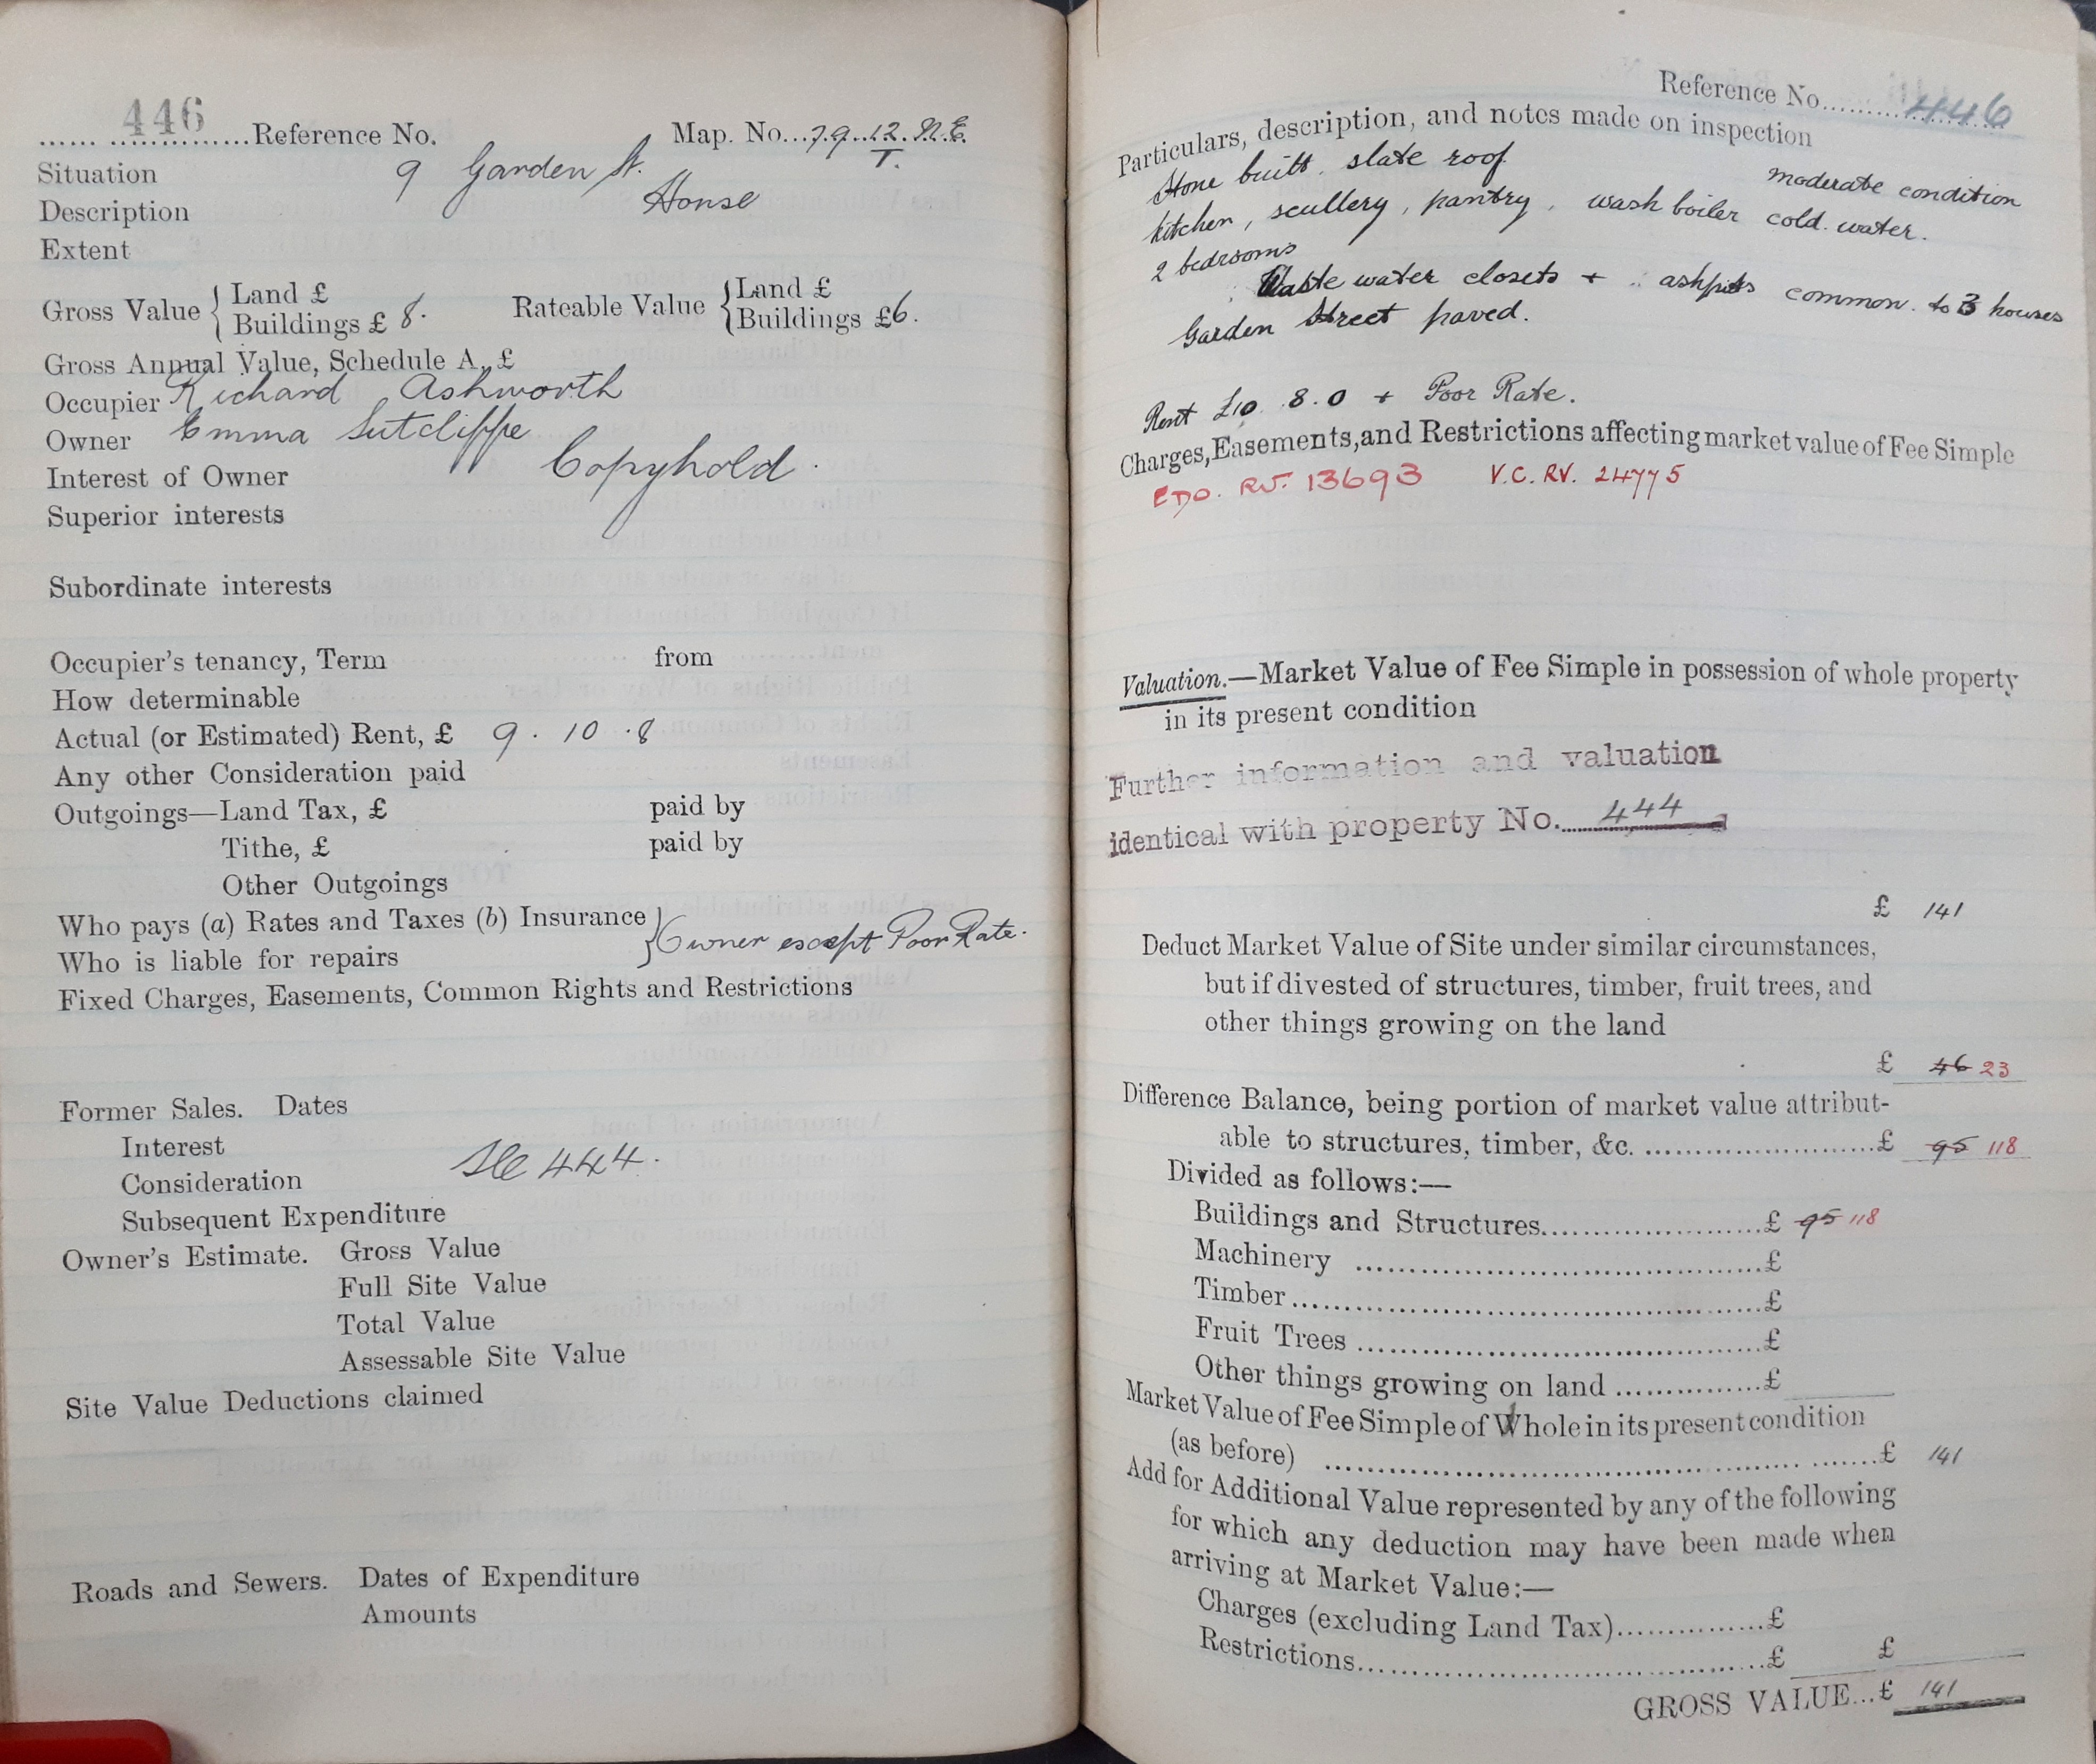 446
...... ..............Reference No. Map. No...79..12. N.E.
T.
Situation 9 Garden St.
Description House
Extent
Gross Value { Land £ Rateable Value { Land £
Buildings £ 8. Buildings £6.
Gross Annual Value, Schedule A, £
Occupier Richard Ashworth
Owner Emma Sutcliffe
Interest of Owner Copyhold.
Superior interests
Subordinate interests
Occupier's tenancy, Term from
How determinable
Actual (or Estimated) Rent, £ 9 . 10 . 8
Any other Consideration paid
Outgoings—Land Tax, £ paid by
Tithe, £ paid by
Other Outgoings
Who pays (a) Rates and Taxes (b) Insurance } Owner except Poor Rate.
Who is liable for repairs
Fixed Charges, Easements, Common Rights and Restrictions
Former Sales. Dates
Interest
Consideration See 444.
Subsequent Expenditure
Owner's Estimate. Gross Value
Full Site Value
Total Value
Assessable Site Value
Site Value Deductions claimed
Roads and Sewers. Dates of Expenditure
Amounts
Reference No..........446
Particulars, description, and notes made on inspection
Stone built. slate roof. moderate condition
kitchen, scullery, pantry, wash boiler cold. water.
2 bedrooms
Waste water closets + ashpits common. to 3 houses
Garden Street paved.
Rent £10. 8.0 + Poor Rate.
Charges, Easements, and Restrictions affecting market value of Fee Simple
EDO. RV. 13693 V.C. RV. 24775
Valuation.—Market Value of Fee Simple in possession of whole property
in its present condition
Further information and valuation
identical with property No. 444
£ 141
Deduct Market Value of Site under similar circumstances,
but if divested of structures, timber, fruit trees, and
other things growing on the land
£ 46 23
Difference Balance, being portion of market value attribut-
able to structures, timber, &c. ..........................£ 95 118
Divided as follows:—
Buildings and Structures.........................£ 95 118
Machinery ..............................................£
Timber.....................................................£
Fruit Trees ..............................................£
Other things growing on land ................£
Market Value of Fee Simple of Whole in its present condition
(as before) .............................................................£ 141
Add for Additional Value represented by any of the following
for which any deduction may have been made when
arriving at Market Value:—
Charges (excluding Land Tax)................£
Restrictions..............................................£ £
GROSS VALUE...£ 141